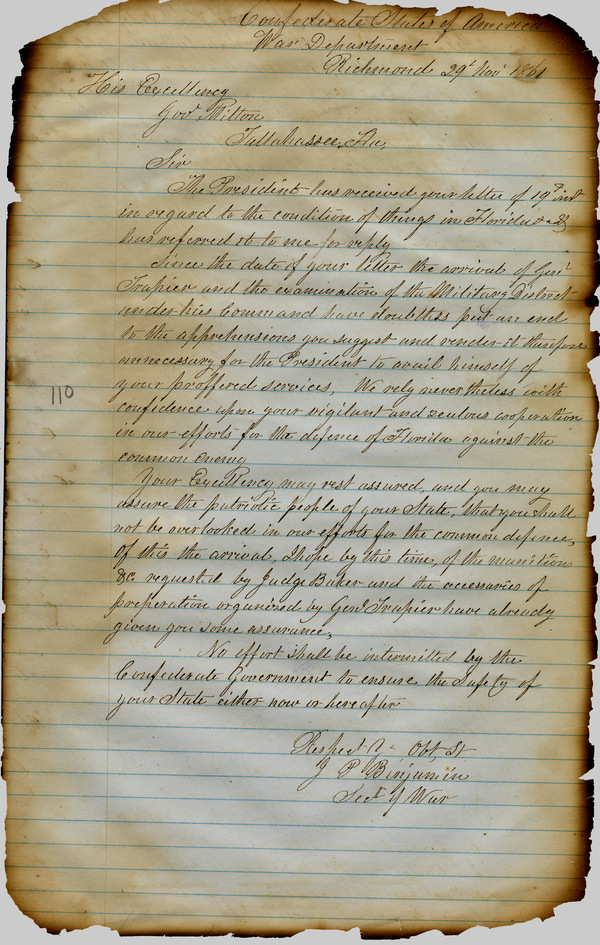 Confederate States of America
War Department
Richmond 29th Novr 1861
His Excellency
Govr Milton
Tallahassee, Fla,
Sir
The President has received your letter of 19th inst
in regard to the condition of things in Florida &c &
has referred it to me for reply
Since the date of your letter the arrival of Genl
Trapier and the examination of the Military District
under his Command have doubtless put an end
to the apprehensions you suggest and render it therefore
unnecessary for the President to avail himself of
your proffered services, We rely nevertheless with
confidence upon your vigilant and zealous cooperation
110
in our efforts for the defence of Florida against the
common enemy
Your Excellency may rest assured, and you may
assure the patriotic people of your State, that you shall
not be overlooked in our efforts for the common defence,
Of this the arrival, I hope by this time, of the munitions
&c requested by Judge Baker and the accessaries of
preparation organized by Genl Trapier have already
given you some assurance,
No effort shall be intermitted by the
Confederate Government to ensure the Safety of
your State either now or hereafter
Respect Yr Obt St
J P Binjamin
Sect of War